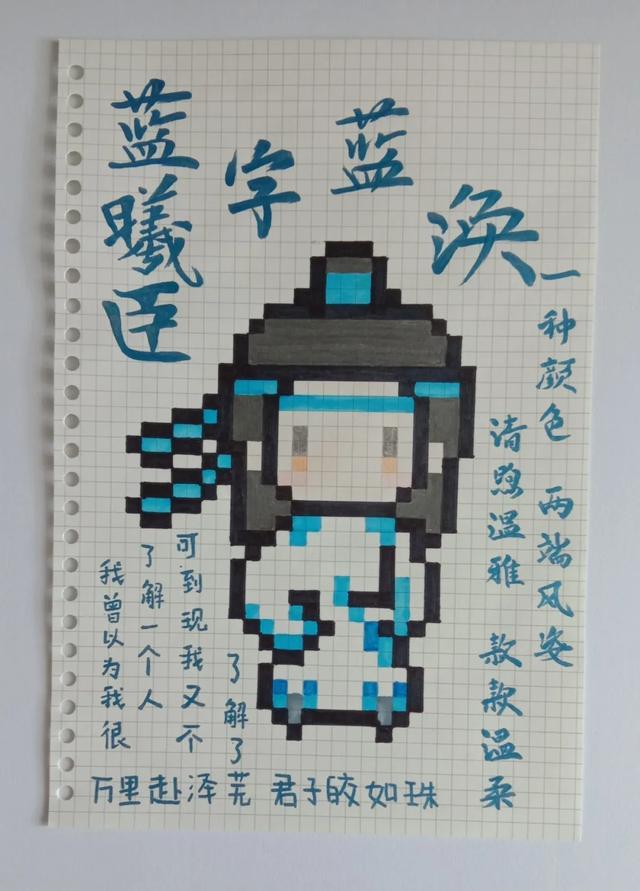 蓝曦臣
字
蓝
涣
一种颜色 两端风姿
清煦温雅 款款温柔
我曾以为我很
了解一个人
可到现我又不
了解了
万里赴泽芜 君子皎如珠